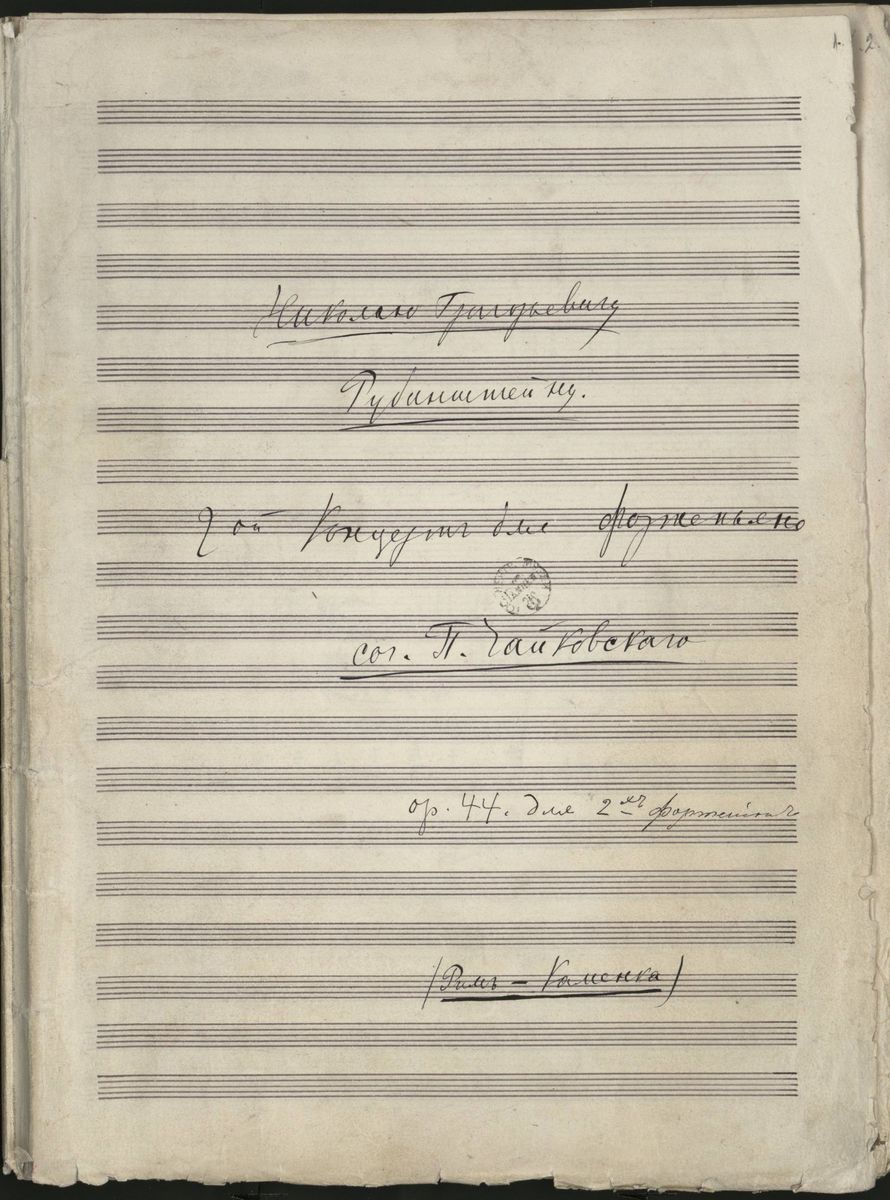 1. 2.
Николаю Григорьевичу
Рубинштейну.
2ой Концертъ для фортепьяно
соч. П. Чайковскаго
op. 44. для 2хъ
(Римъ – Каменка)